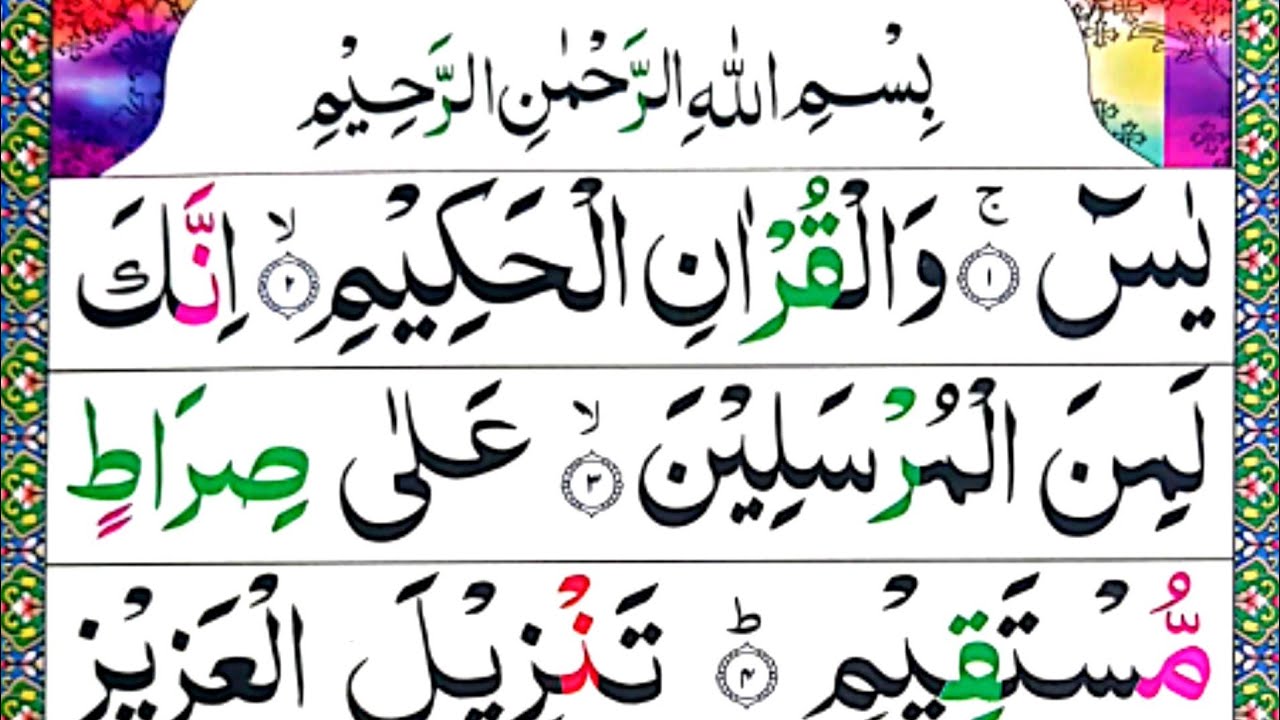 بِسْمِ اللّٰهِ الرَّحْمٰنِ الرَّحِيْمِ
يٰسٓ ۚ ﴿۱﴾ وَالْقُرْاٰنِ الْحَكِيْمِ ۙ ﴿۲﴾ اِنَّكَ
لَمِنَ الْمُرْسَلِيْنَ ۙ ﴿۳﴾ عَلٰى صِرَاطٍ
مُّسْتَقِيْمٍ ؕ ﴿۴﴾ تَنْزِيْلَ الْعَزِيْزِ